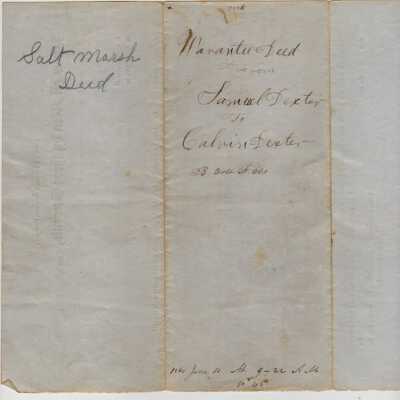 Salt Marsh
Deed
Warantee Deed
from
Samuel Dexter
To
Calvin Dexter
3
June
9
A M